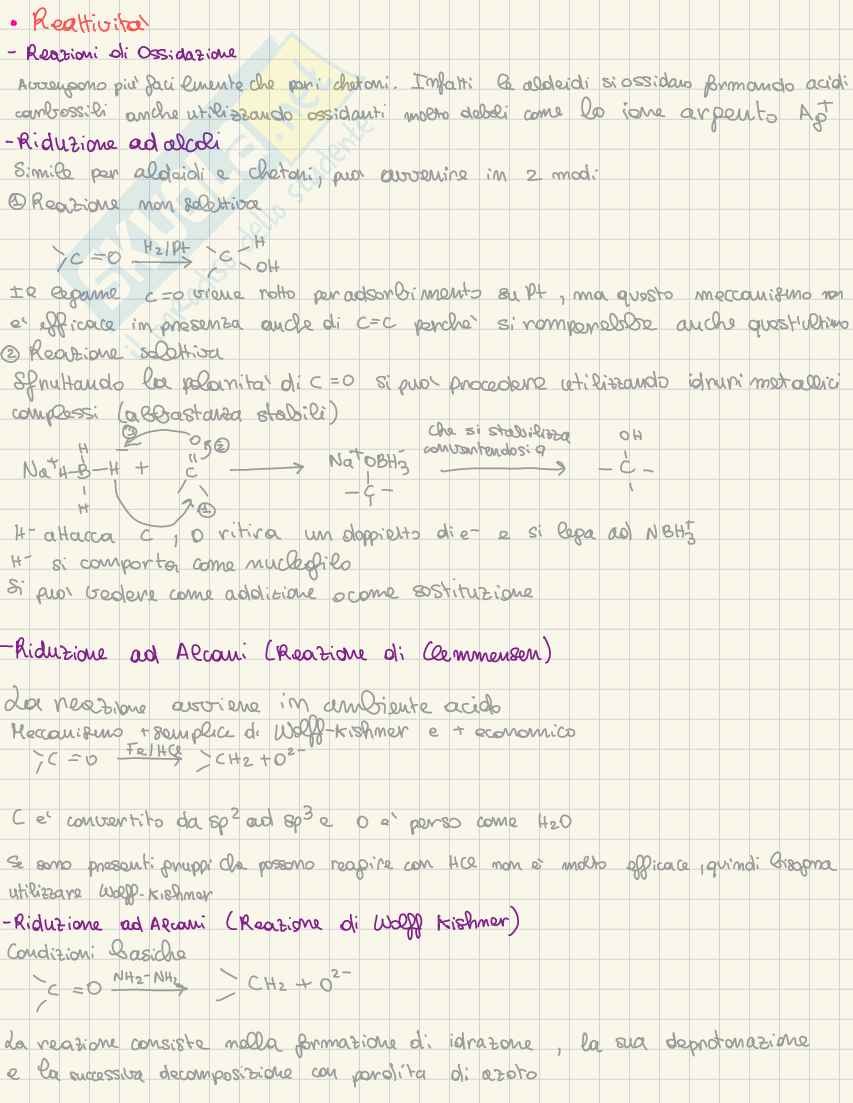 • Reattività
- Reazioni di Ossidazione
Avvengono più facilmente che per i chetoni. Infatti le aldeidi si ossidano formando acidi
carbossili anche utilizzando ossidanti molto deboli come lo ione argento Ag⁺
- Riduzione ad alcoli
Simile per aldeidi e chetoni, può avvenire in 2 modi:
① Reazione non selettiva
C=O H2/Pt C H
OH
Il legame C=O viene rotto per adsorbimento su Pt, ma questo meccanismo non
è efficace in presenza anche di C=C perchè si romperebbe anche quest'ultimo
② Reazione selettiva
Sfruttando la polarità di C=O si può procedere utilizzando idruri metallici
complessi (abbastanza stabili)
Na⁺H-B-H + C O ① ② ③ Na⁺OBH₃⁻ -C- che si stabilizza convertendosi a OH -C-
H⁻ attacca C, O ritira un doppietto di e⁻ e si lega ad NBH₃⁺
H⁻ si comporta come nucleofilo
Si può vedere come addizione o come sostituzione
- Riduzione ad Alcani (Reazione di Clemmensen)
La reazione avviene in ambiente acido
Meccanismo + semplice di Wolff-Kishner e + economico
C=O Fe/HCl CH2 + O²⁻
C è convertito da sp² ad sp³ e O è perso come H2O
Se sono presenti gruppi che possono reagire con HCl non è molto efficace, quindi bisogna
utilizzare Wolff-Kishner
- Riduzione ad Alcani (Reazione di Wolff Kishner)
Condizioni basiche
C=O NH2-NH2 CH2 + O²⁻
La reazione consiste nella formazione di idrazone, la sua deprotonazione
e la successiva decomposizione con perdita di azoto
SKUOLA.net
il paradiso dello studente